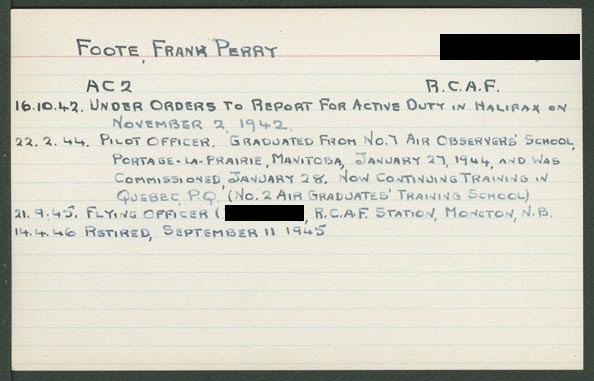 FOOTE, FRANK PERRY
AC2 R.C.A.F.
16.10.42. UNDER ORDERS TO REPORT FOR ACTIVE DUTY IN HALIFAX ON
NOVEMBER 2, 1942.
22.2.44. PILOT OFFICER. GRADUATED FROM NO.7 AIR OBSERVERS' SCHOOL,
PORTAGE-LA-PRAIRIE, MANITOBA, JANUARY 27, 1944, AND WAS
COMMISSIONED, JANUARY 28. NOW CONTINUING TRAINING IN
QUEBEC, P.Q. (NO.2 AIR GRADUATES' TRAINING SCHOOL)
21.9.45. FLYING OFFICER ( , R.C.A.F. STATION, MONCTON, N.B.
14.4.46 RETIRED, SEPTEMBER 11 1945